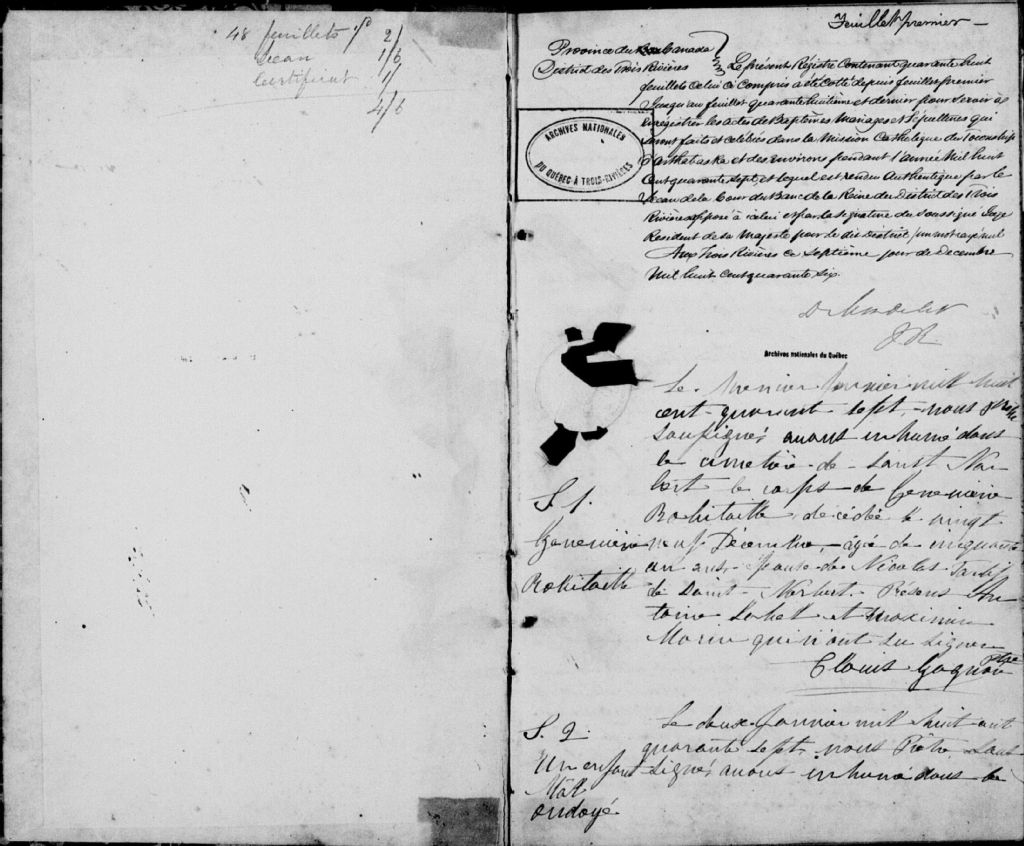 48 feuillets 2/
Sceau 1/6
Certificat 1/
4/6
Feuillet premier
Province du Canada
District des Trois Rivières
Le présent Régistre Contenant quarante huit
feuillets celui ci compris a été Cotté depuis feuillet premier
Jusqu'au feuillet quarante huitième et dernier pour servir à
enrégistrer les actes de Baptêmes Mariages et Sépultures qui
seront faits et célébrés dans la Mission Catholique du Township
d'Arthabaska et des environs pendant l'année Mil huit
Cent quarante sept, et lequel est rendu Authentique par le
Sceau de la Cour du Banc de la Reine du District des Trois
Rivières apposé à celui et par la signature du Soussigné Juge
Resident de sa Majesté pour le dit District / un mot rayé nul
Aux Trois Rivières ce Septième jour de Decembre
Mil huit cent quarante six.
ARCHIVES NATIONALES
DU QUÉBEC À TROIS-RIVIÈRES
D Mondelet
Archives nationales du Québec
Le premier Janvier mill huit
cent quarant sept, nous Prêtre
soussigné, avons inhumé dans
le cimetière de Saint Nor
bert le corps de Geneviève
Robitaille, décédée le vingt
neuf Décembre, âgée de cinquante
un ans, épouse de Nicolas
de Saint Norbert. Présens An
toine et Maximin
qui n'ont su signer
Clovis Gagnon Ptre
S. 1.
Geneviève
Robitaille
Le deux Janvier mil huit cent
quarante sept, nous Prêtre sous
signé, avons inhumé dans le
S. 2.
Un enfant
Mâl
ondoyé